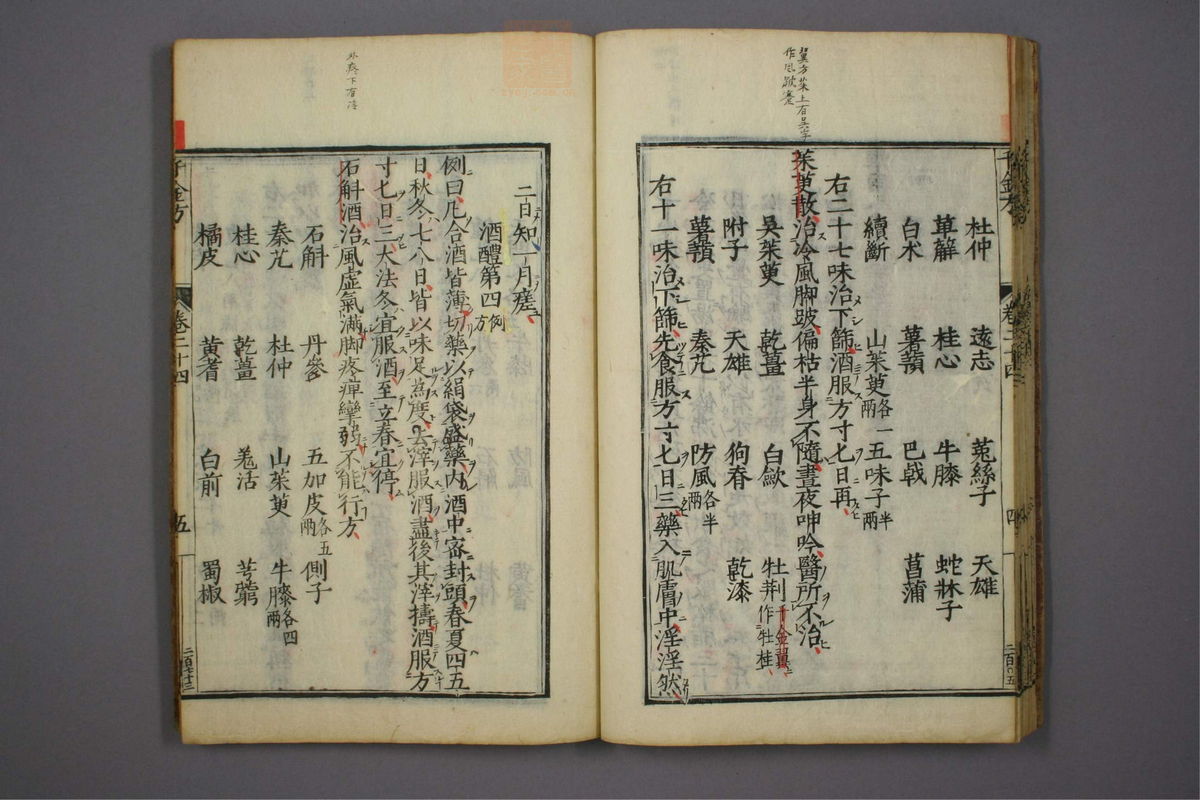 杜仲 遠志 菟絲子 天雄
萆解 桂心 牛膝 蛇牀子
白术 薯蕷 巴戟 菖蒲
續斷 山茱萸各一兩 五味子半兩
右二十七味治下篩酒服方寸七日再
茱萸散治冷風脚跛偏枯半身不隨晝夜呻吟醫所不治
吳茱萸 乾薑 白歛 牡荆千金翼作牡桂
附子 天雄 狗脊 乾漆
薯蕷 秦艽 防風各半兩
右十一味治下篩先食服方寸七日三藥入肌膚中淫淫然
千金方 卷二十四 四
二日知一月瘥
酒醴第四例方
例曰凡合酒皆薄切藥以絹袋盛藥內酒中密封頭春夏四五
日秋冬七八日皆以味足為度去滓服酒盡後其滓擣酒服方
寸七日三大法冬宜服酒至立春宜停
石斛酒治風虛氣滿脚疼痺攣弱不能行方
石斛 丹參 五加皮各五兩 側子
秦艽 杜仲 山茱萸 牛膝各四兩
桂心 乾薑 羌活 芎藭
橘皮 黃耆 白前 蜀椒
千金方 卷二十四 五